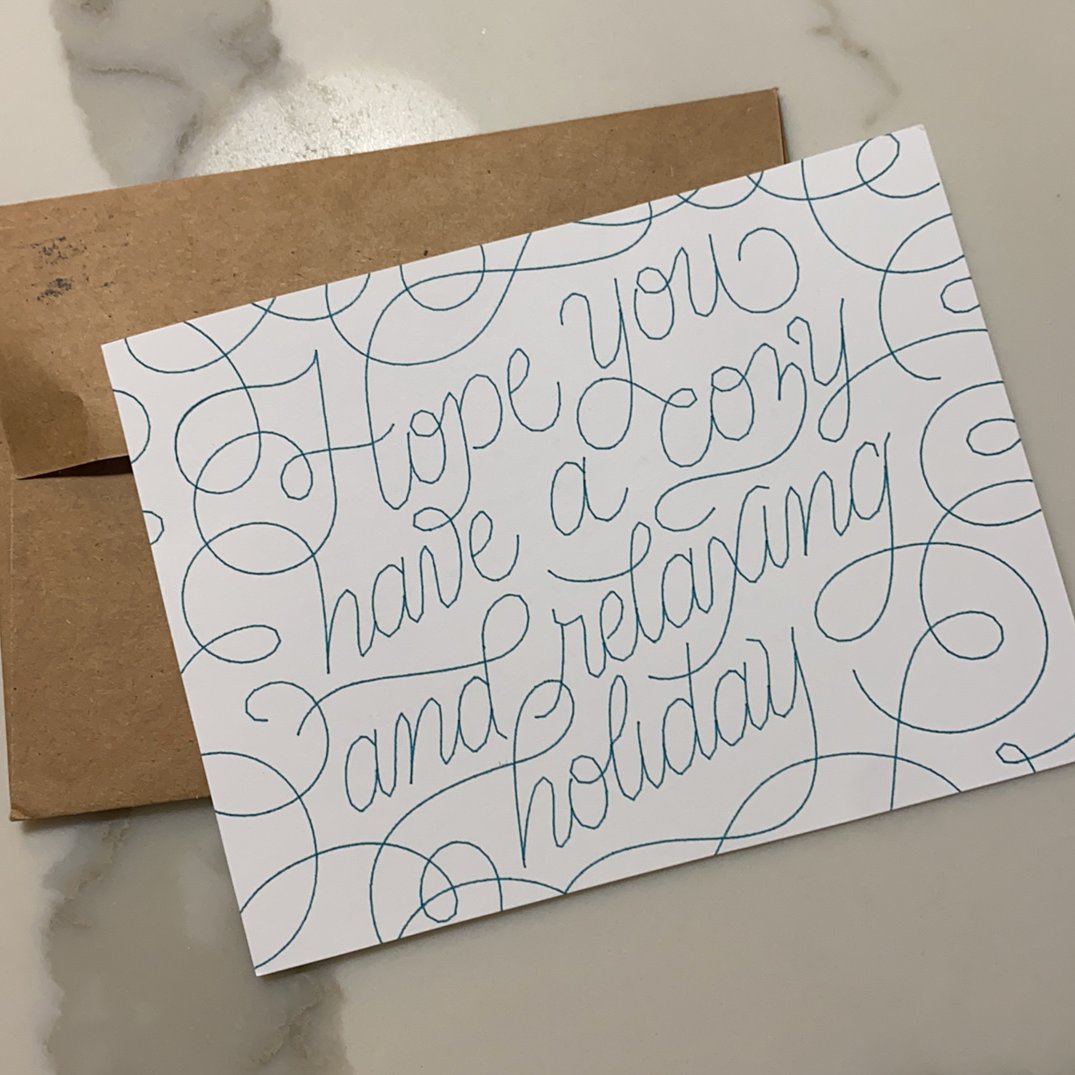 Hope you
have a cozy
and relaxing
holiday